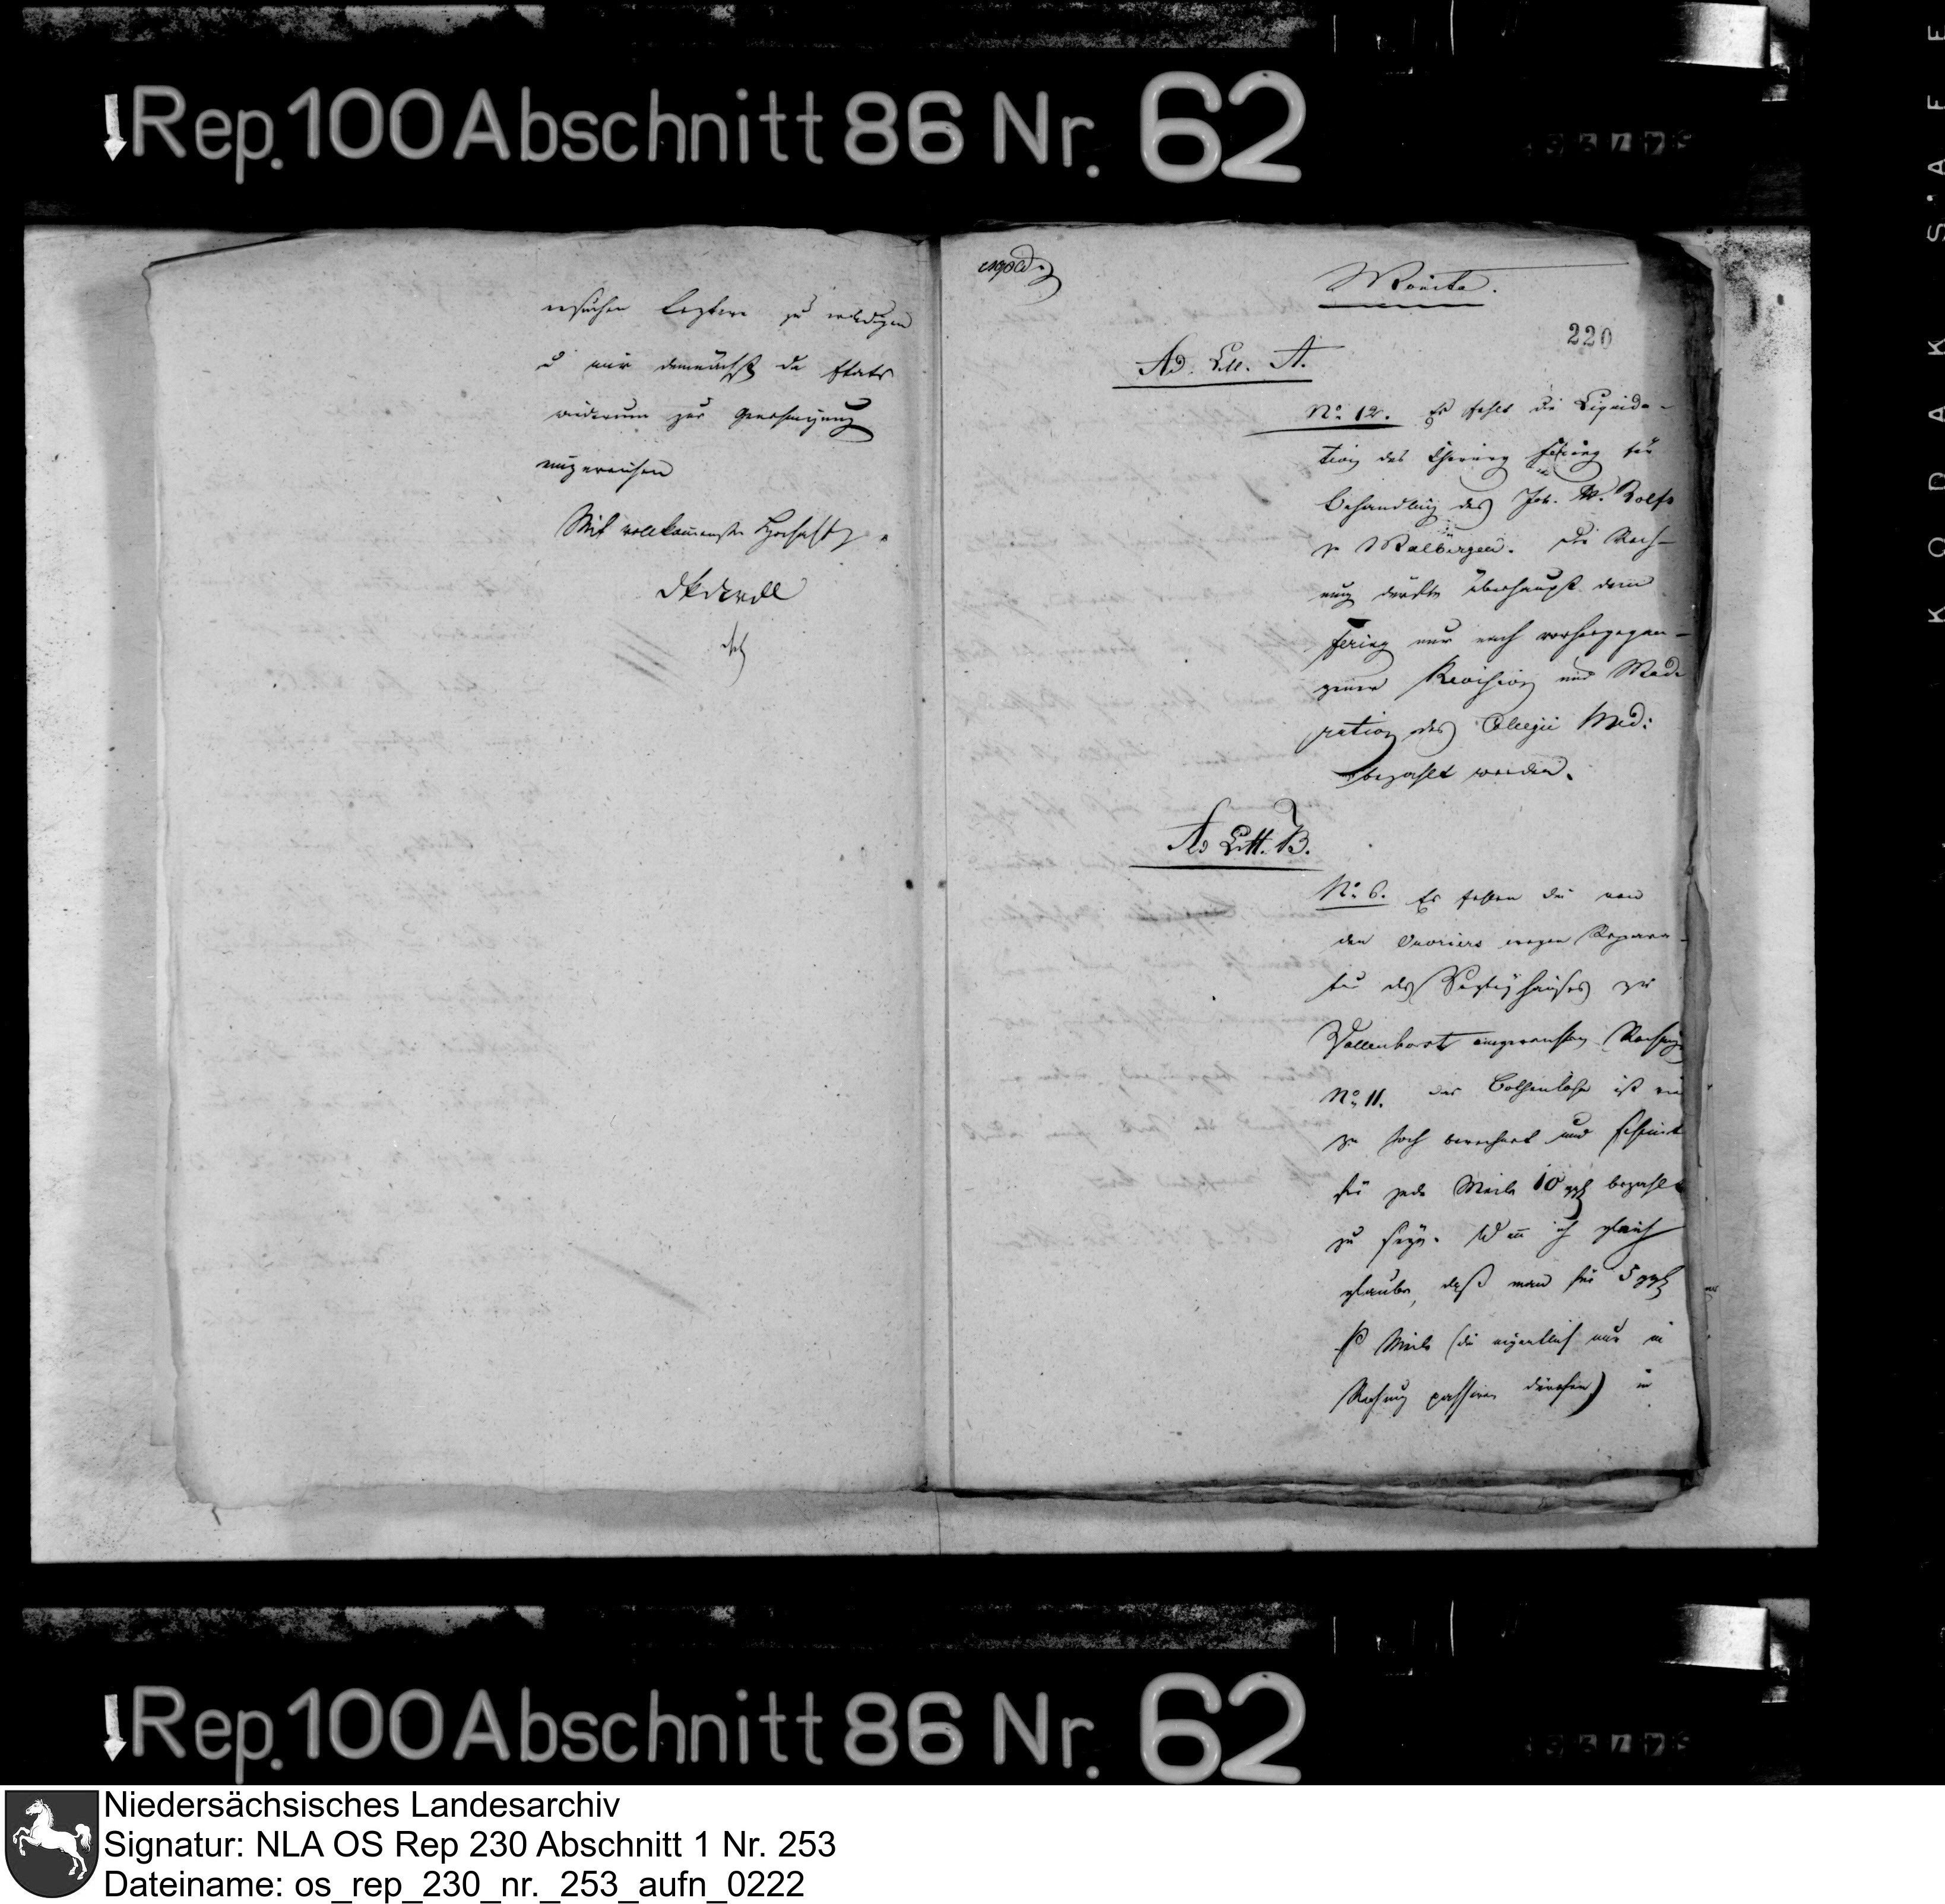 Rep. 100 Abschnitt 86 Nr. 62
ersuchen letztere zu erledigen
u mir demnächst die Etats
wiederum zur Genehmigung
einzureichen
Mit vollkommenster Hochacht
expedr
Monita.
220
Ad. Litt. A.
No. 12. Es fehlt die Liquida-
tion des Chirurg Fering für
Behandlung des Joh. W. Rolfs
zu Malbergen. Die Rech-
nung dürfte überhaupt dem
Fering nur nach vorhergegan-
gener Revision und Mode
ration des Collegii Med:
bezahlt werden.
Ad Litt. B.
No. 6. Es fehlen die von
den Ouvriers wegen Repara-
tur des Vogteyhauses zu
Wallenhorst eingereichten Rechnung
No. 11. das Bothenlohn ist viel
zu hoch berechnet und scheint
für jede Meile 10 ggl bezahlt
zu seyn. Wenn ich gleich
glaube, daß man für 5 ggl
p Meile (die eigentlich nur in
Rechnung passiren dürfen) in
Rep. 100 Abschnitt 86 Nr. 62
Niedersächsisches Landesarchiv
Signatur: NLA OS Rep 230 Abschnitt 1 Nr. 253
Dateiname: os_rep_230_nr._253_aufn_0222
KODAK SAFE